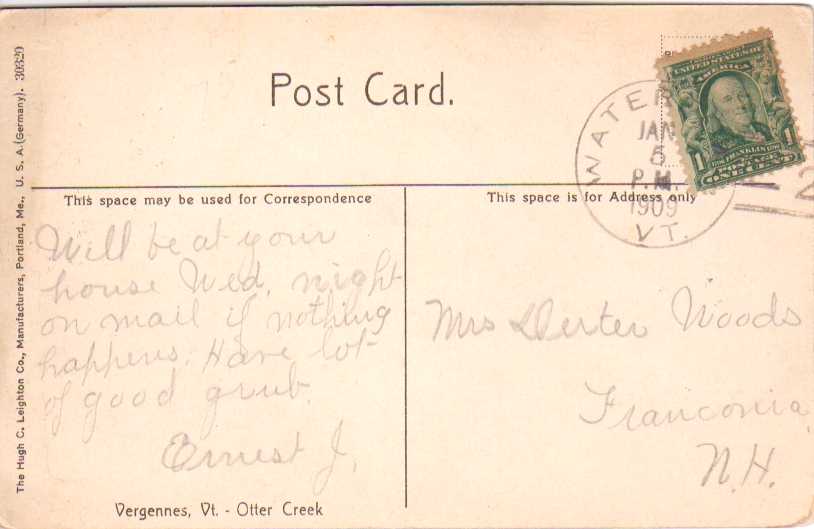 Post Card.
This space may be used for Correspondence
This space is for Address only
The Hugh C. Leighton Co., Manufacturers, Portland, Me., U. S. A. (Germany). 30320
UNITED STATES OF
AMERICA
1 FRANKLIN 1
POSTAGE
ONE CENT
WATER
JAN
5
P.M.
1909
VT.
2
Will be at your
house Wed. night
on mail if nothing
happens. Have lot
of good grub.
Ernest J.
Mrs Dexter Woods
Franconia
N.H.
Vergennes, Vt. - Otter Creek